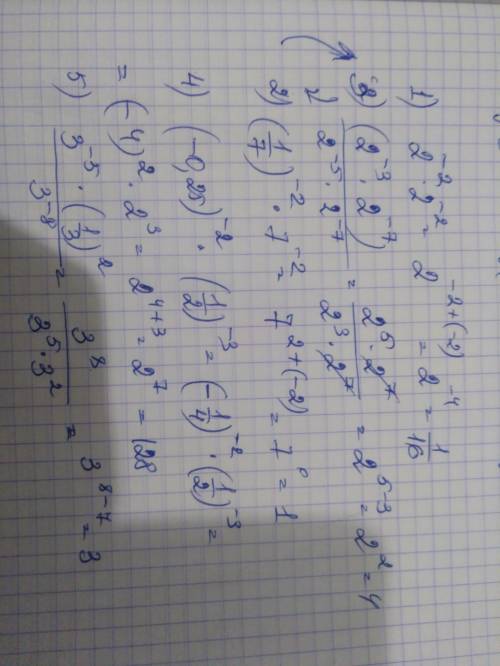 1) 2⁻² · 2⁻² = 2⁻²⁺⁽⁻²⁾ = 2⁻⁴ = 1/16
3) (2⁻³ · 2⁻⁷) / (2⁻⁵ · 2⁻⁷) = (2⁵ · 2⁷) / (2³ · 2⁷) = 2⁵⁻³ = 2² = 4
2) (1/7)⁻² · 7⁻² = 7²⁺⁽⁻²⁾ = 7⁰ = 1
4) (-0,25)⁻² · (1/2)⁻³ = (-1/4)⁻² · (1/2)⁻³ =
= (-4)² · 2³ = 2⁴⁺³ = 2⁷ = 128
5) (3⁻⁵ · (1/3)²) / 3⁻⁸ = 3⁸ / (3⁵ · 3²) = 3⁸⁻⁷ = 3